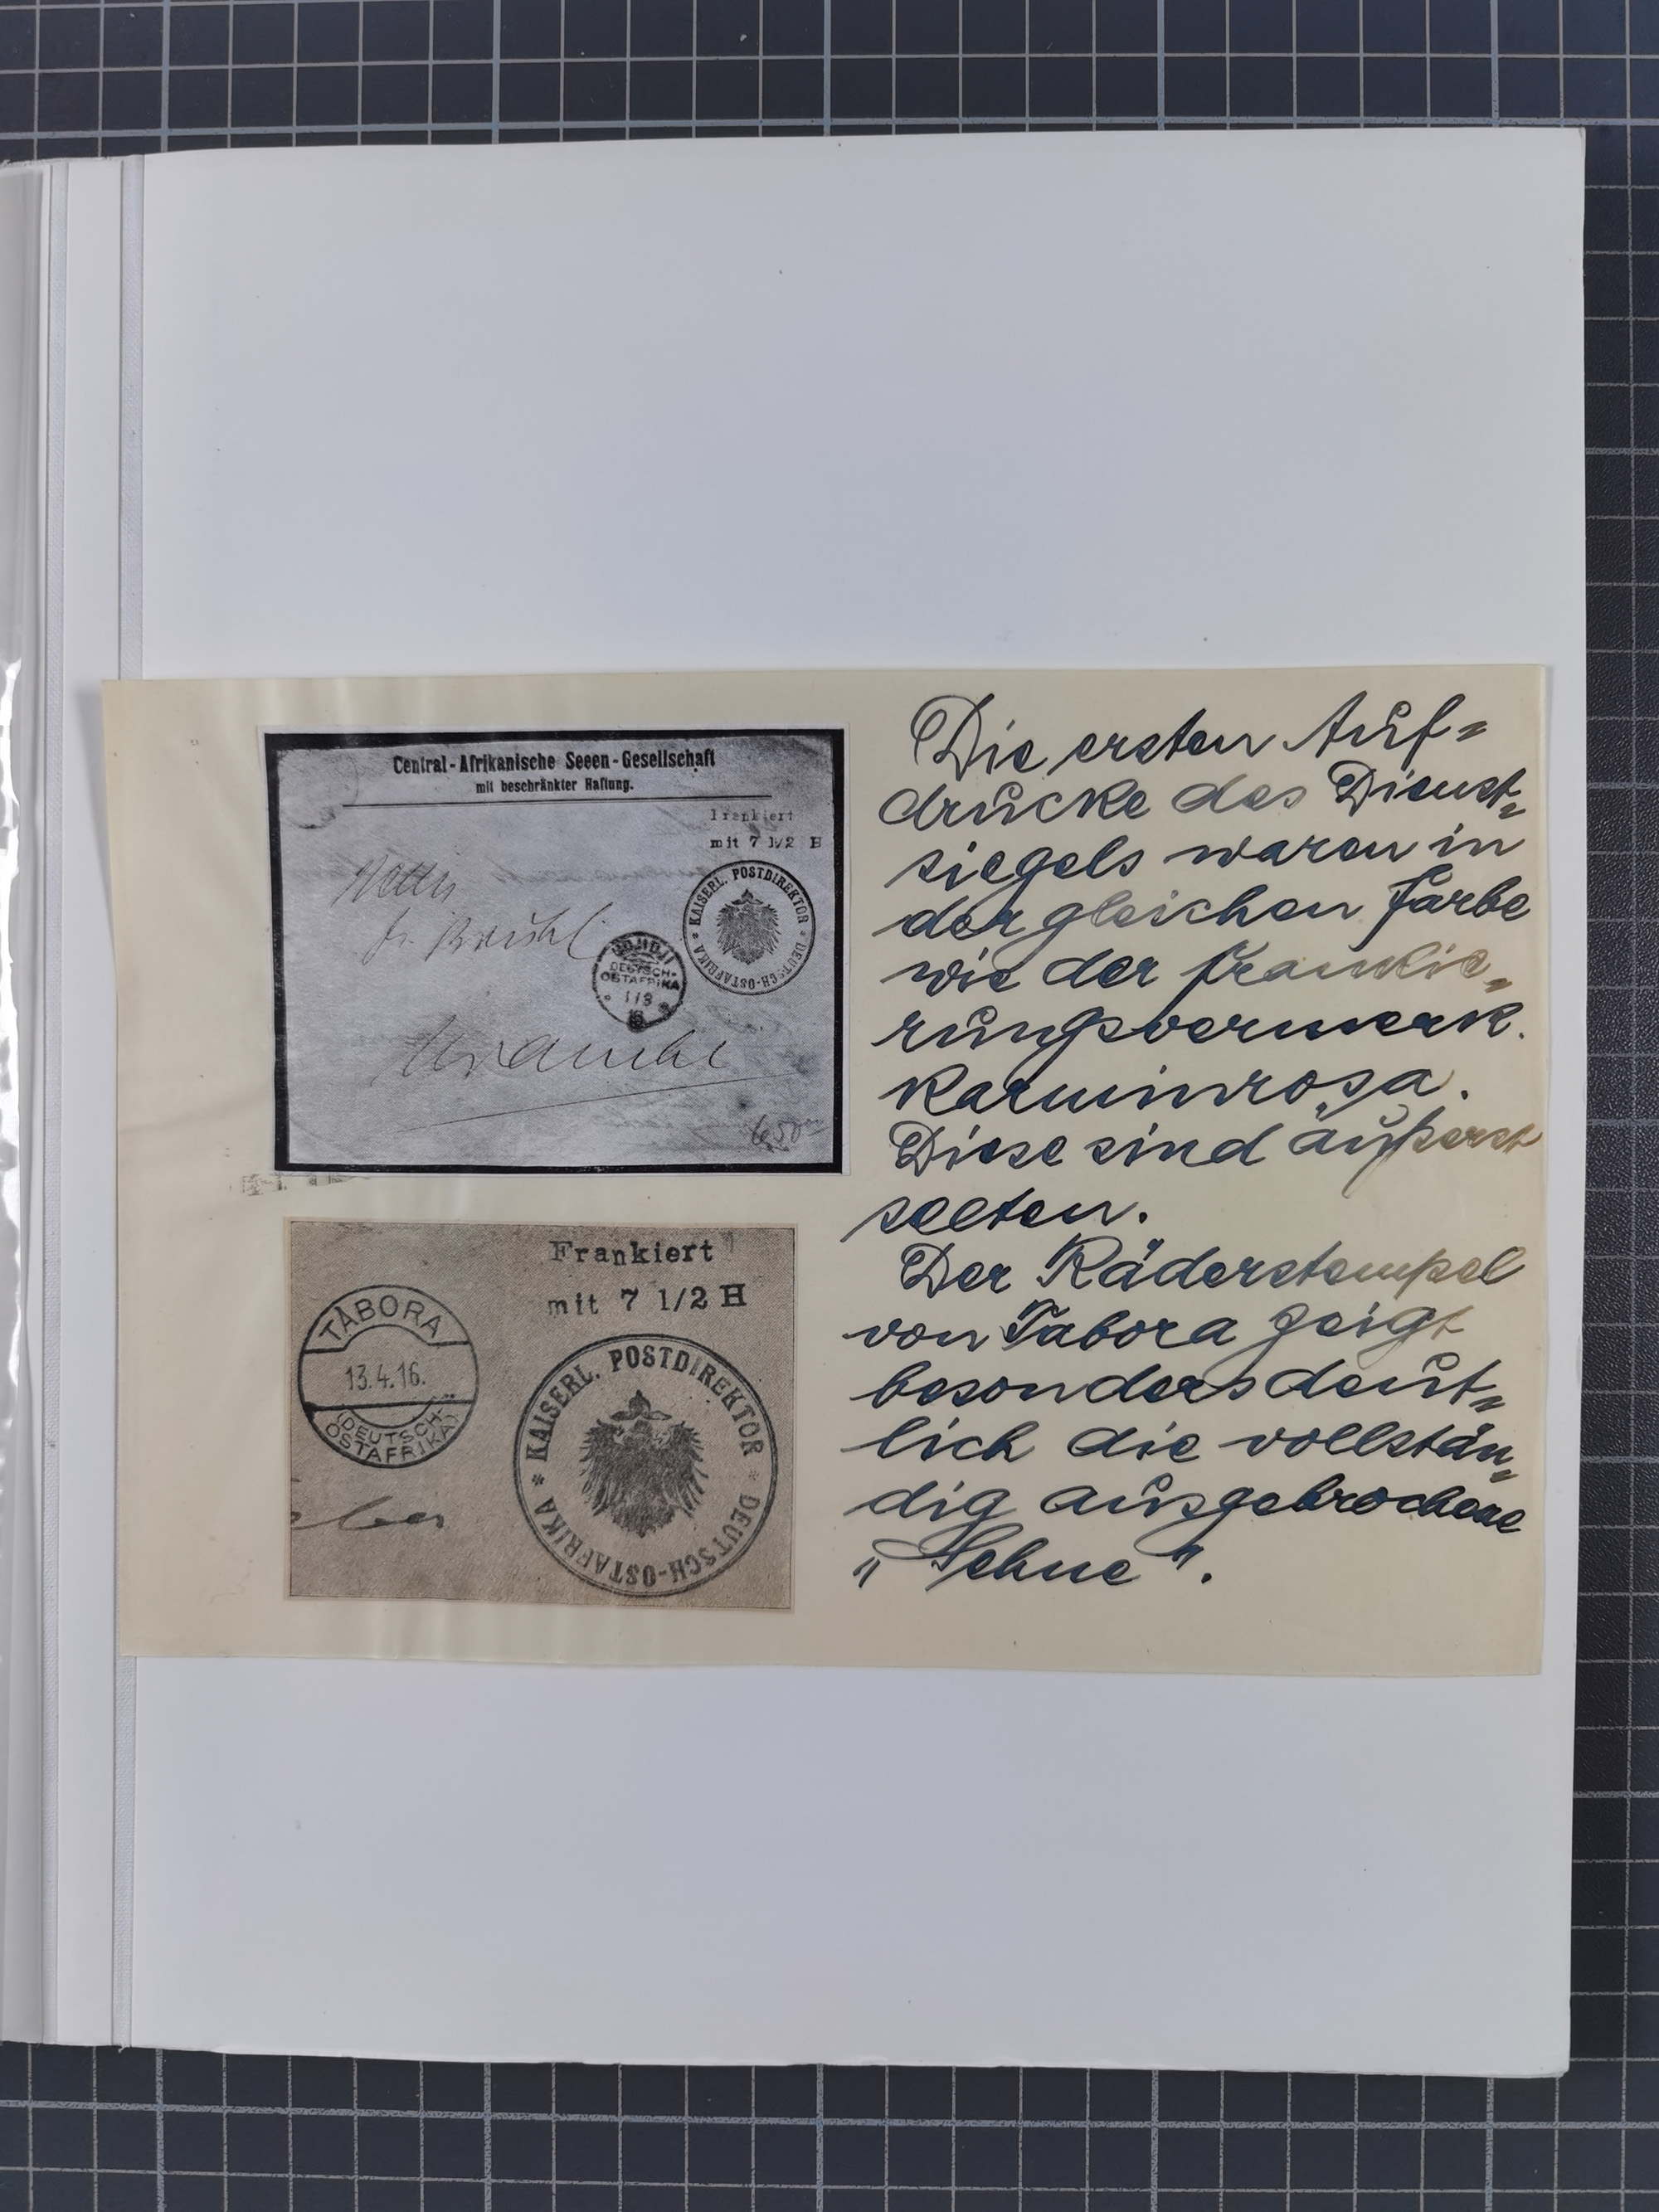 Central-Afrikanische Seeen-Gesellschaft
mit beschränkter Haftung.
Frankiert
mit 7 1/2 H
* KAISERL. POSTDIREKTOR * DEUTSCH-OSTAFRIKA
DEUTSCH-
OSTAFRIKA
Frankiert
mit 7 1/2 H
TABORA
13.4.16.
(DEUTSCH-
OSTAFRIKA)
* KAISERL. POSTDIREKTOR * DEUTSCH-OSTAFRIKA
Die ersten Auf-
drucke des Dienst-
siegels waren in
der gleichen Farbe
wie der Frankie-
rungsvermerk.
Karminrosa.
Diese sind äußerst
selten.
Der Räderstempel
von Tabora zeigt
besonders deut-
lich die vollstän-
dig ausgebrochene
"Sehne".